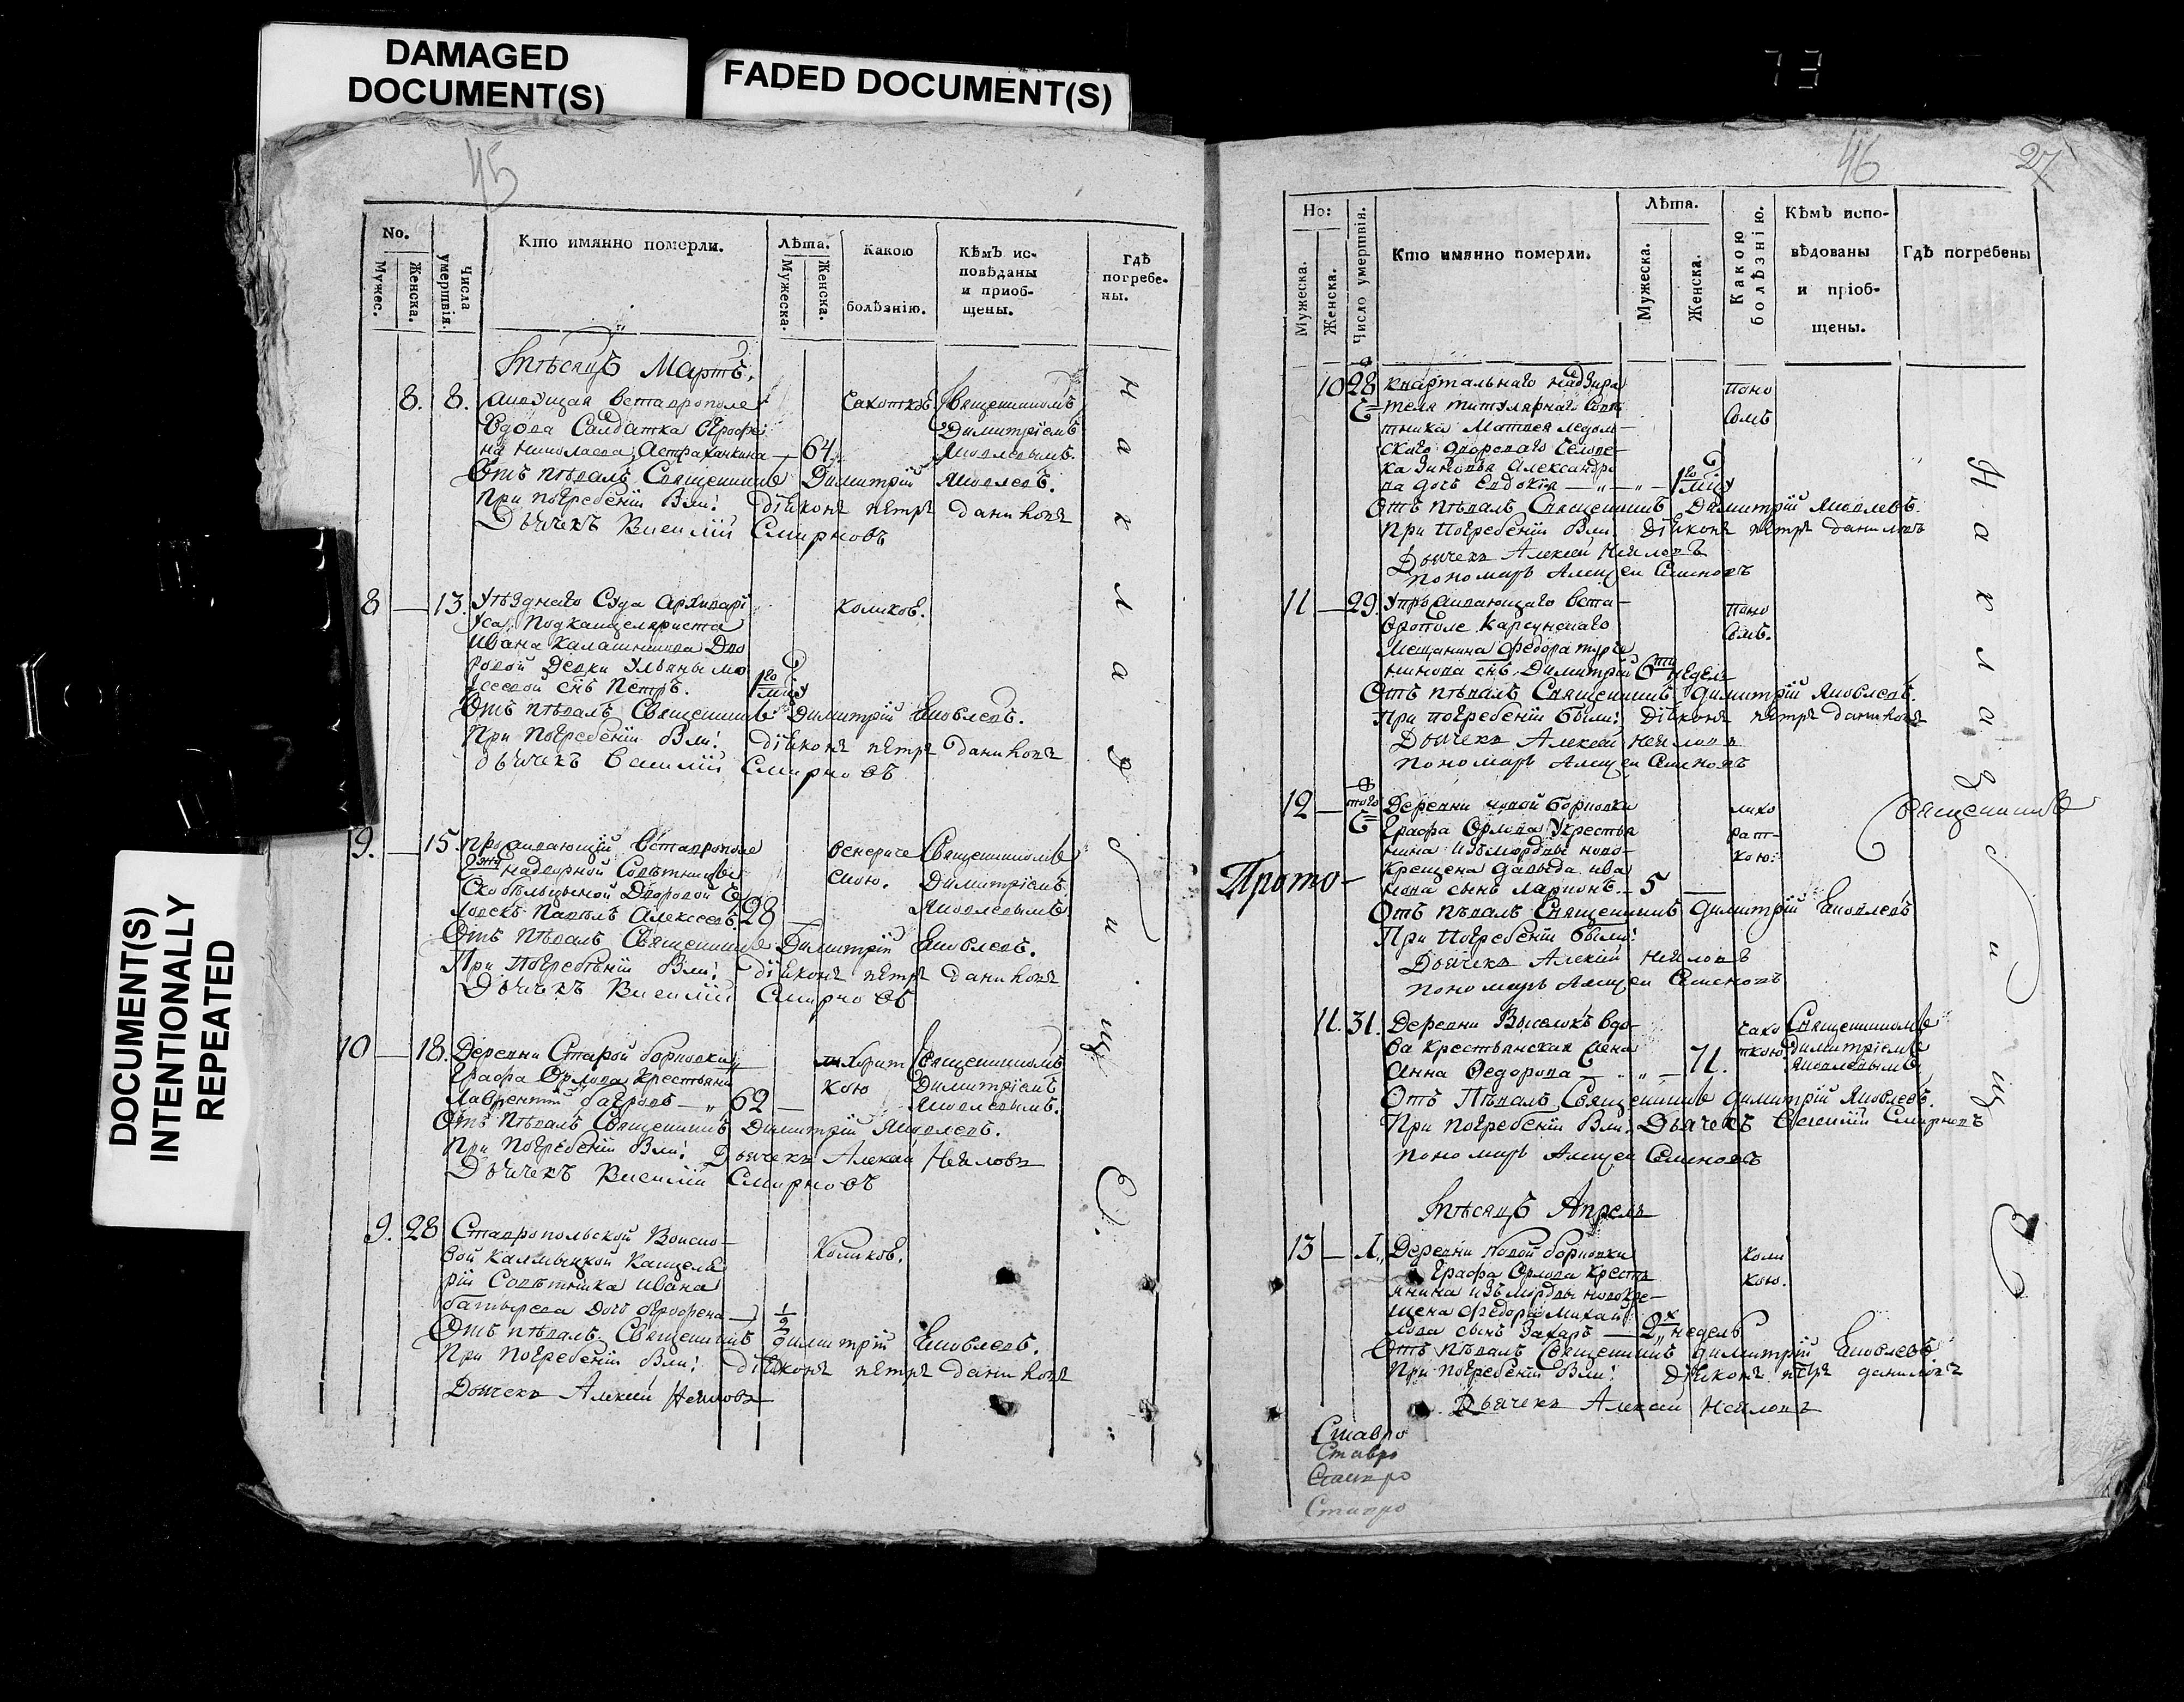 DAMAGED
DOCUMENT(S)
FADED DOCUMENT(S)
DOCUMENT(S)
INTENTIONALLY
REPEATED
73
45
No.
Мужес.
Женска.
Числа умертвія.
Кто имянно померли.
Лѣта.
Мужеска.
Женска.
Какою
болѣзнію.
Кѣмъ ис-
повѣданы
и приоб-
щены.
Гдѣ
погребе-
ны.
Мѣсяцъ Мартъ.
8. 8.
вставрополе
вдова Салдатка
Астраханкина — 64.
Чахоткою
Священникомъ
Димитріемъ
Яковлевымъ.
Отъ пѣвалъ Священникъ Димитрий Яковлевъ.
При погребеніи Были: діаконъ петръ даниловъ
Дьячекъ Василій Смирновъ
8 — 13. Уѣзднаго Суда Архивари
уса Подканцеляриста
Ивана Калашникова Дво
ровой Девки Ульяны
сѣй снъ Петръ.
Коликою.
Отъ пѣвалъ Священникъ Димитрий Яковлевъ.
При погребеніи Были: діаконъ петръ даниловъ
дьячекъ Василій Смирновъ
9. — 15. проживающій вставрополе
надворной Совѣтницы
Скобѣльцыной Дворовой Че
ловекъ Павелъ Алексеевъ. 28 —
венериче
скою.
Священникомъ
Димитріемъ
Яковлевымъ
Отъ пѣвалъ Священникъ Димитрій Яковлевъ.
При погребѣніи Были: діаконъ петръ даниловъ
Дьячекъ Василій Смирновъ
10 — 18. Деревни Старой борковки
Графа Орлова крестьянинъ
Лаврентий — 62 —
лихорат
кою
Священникомъ
Димитріемъ
Яковлевымъ.
Отъ пѣвалъ Священникъ Димитрій Яковлевъ.
При погребеніи Были: Дьячекъ Алексей Неиловъ
Дьячекъ Василій Смирновъ
9. 28 Ставропольской Воиско-
вой калмыцкой Канцеля
рій Советника Ивана
дочь — 1/2
Коликою.
Отъ пѣвалъ Священникъ Димитрій Яковлевъ.
При погребеніи Были: діаконъ петръ даниловъ
Дьячекъ Алексей Неиловъ
на кладбище.
46
27
Но:
Мужеска.
Женска.
Число умертвія.
Кто имянно померли.
Лѣта.
Мужеска.
Женска.
Какою
болѣзнію.
Кѣмъ испо-
вѣдованы
и пріоб-
щены.
Гдѣ погребены
10 28 квартальнаго надзира
теля титулярнаго Совѣ
тника Матвея
скаго двороваго Челове-
ка Александро
ва дочь Евдокія
поно
сомъ
Отъ пѣвалъ Священникъ Димитрій Яковлевъ.
При погребеніи Были: діаконъ петръ даниловъ
Дьячекъ Алексей Неиловъ
пономарь Алексеи Семеновъ
11 — 29. вста-
врополе Карсунскаго
мещанина федора
снъ Димитрий 6ти недель
поно
сомъ.
Отъ пѣвалъ Священникъ Димитрій Яковлевъ.
При погребеніи были: діаконъ петръ даниловъ
Дьячекъ Алексей Неиловъ
пономарь Алексеи Семеновъ
12 — того Деревни новой борковки
Графа Орлова крестья
нина изъ мордвы ново-
крещена давыда ива
нова сынъ Ларионъ. — 5 —
лихо
рат-
кою:
Прото-
Священникъ
Отъ пѣвалъ Священникъ Димитрій Яковлевъ
При погребеніи были:
Дьячекъ Алексей Неиловъ
пономарь Алексеи Семеновъ
11. 31. Деревни Выселокъ вдо-
ва крестьянская жена
Анна Федорова — 71.
чахо
ткою
Священникомъ
Димитріемъ
Яковлевымъ.
Отъ Пѣвалъ Священникъ Димитрій Яковлевъ.
При погребеніи Были: Дьячекъ Василій Смирновъ
пономарь Алексеи Семеновъ
Мѣсяцъ Апрель
13 — 1, Деревни новой борковки
Графа Орлова кресть
янина изъ мордвы новокре-
щена федора михай
лова сынъ Захаръ — 2х недель
коли
кою.
Отъ пѣвалъ Священникъ Димитрій Яковлевъ
При погребеніи Были: діаконъ петръ даниловъ
Дьячекъ Алексей Неиловъ
на кладбище
Ставро
Ставро
Ставро
Ставро